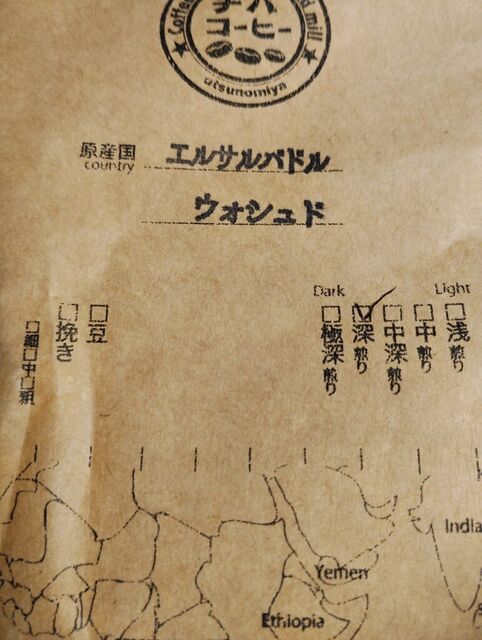 コーヒー
utsunomiya
原産国 エルサルバドル
country
ウォシュド
Dark Light
□豆
□挽き
□細□中□粗
□極深煎り
□深煎り
□中深煎り
□中煎り
□浅煎り
India
Yemen
Ethiopia